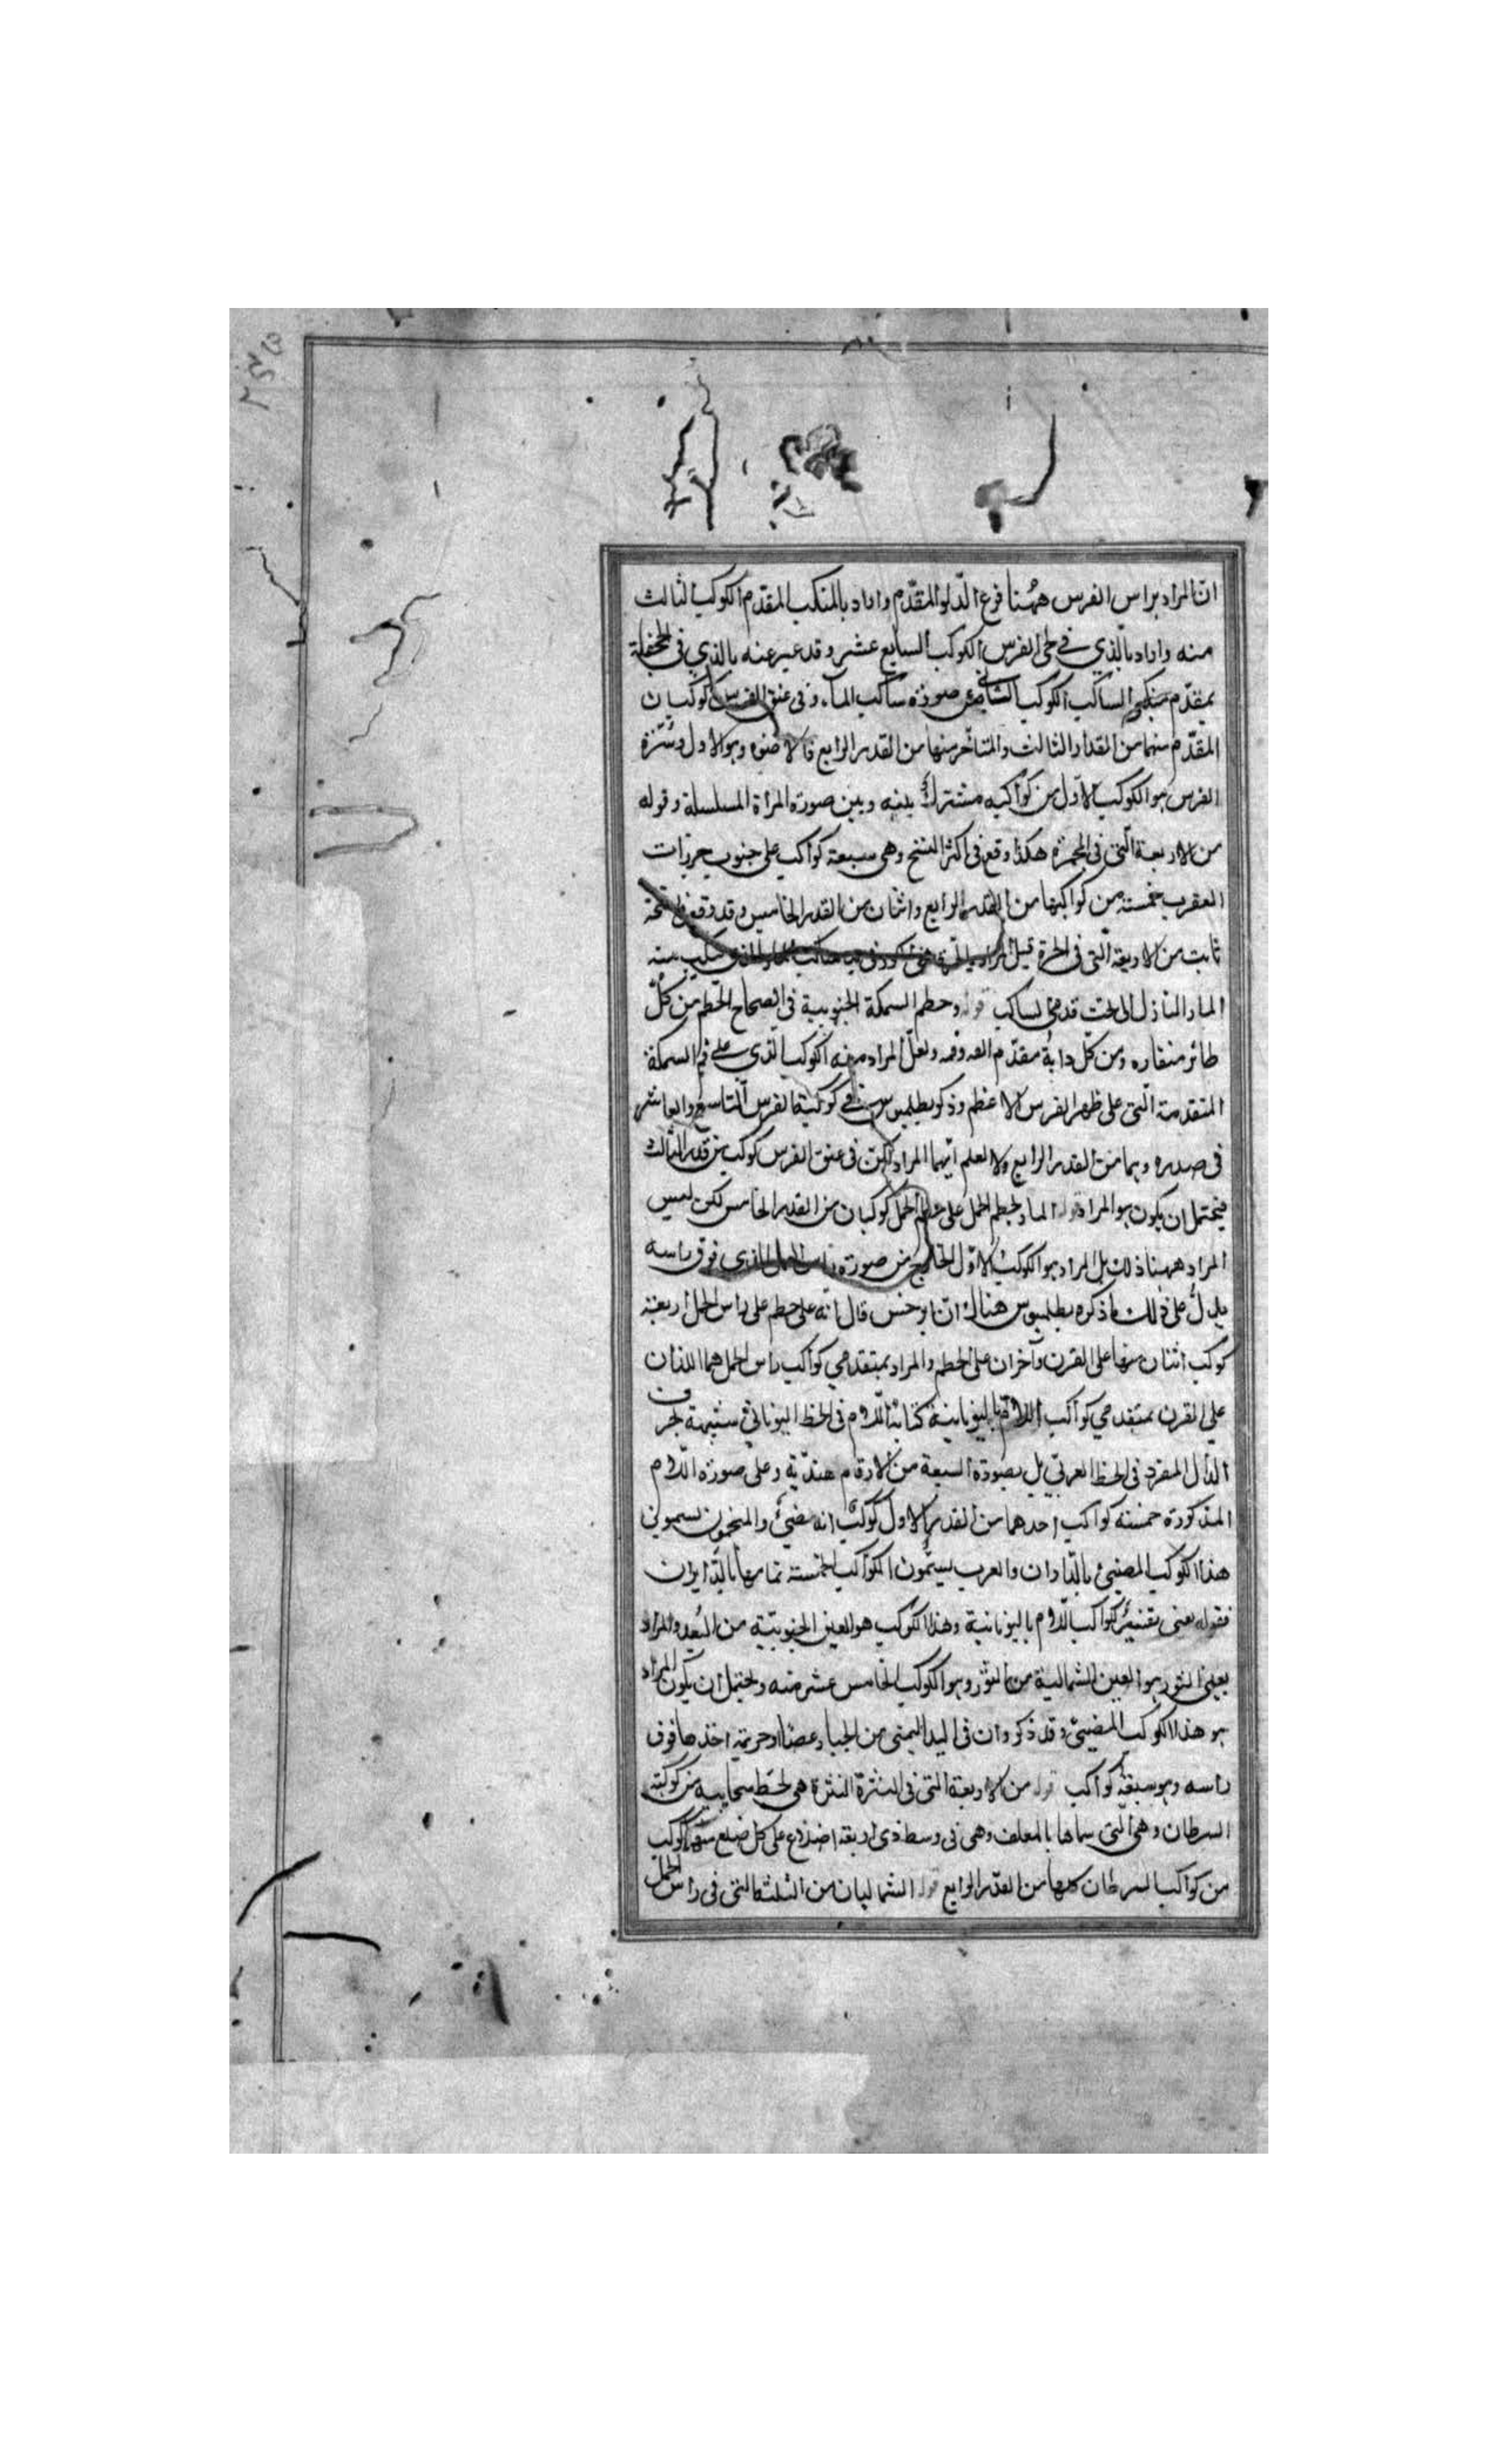 انّ المراد براس الفرس ههُنا فرع الدّلو المقدّم واراد بالمنكب المقدّم الكوكب الثالث
منه واراد بالذي في لحى الفرس الكوكب السابع عشر وقد عبر عنه بالذي في الجحفلة
بمقدّم منكبي الساكب الكوكب الثاني من صورة ساكب الماء وفى عنق الفرس كوكبان
المقدّم منهما من القدر الثالث والمتاخر منها من القدر الرابع فالاضوء وهو الاول وسُرّة
الفرس هو الكوكب الاوّل من كواكبه مشترك بينه وبين صورة المراة المسلسلة وقوله
من الاربعة التى فى المجمرة هكذا وقع فى اكثر النسخ وهى سبعة كواكب على جنوب حرزات
العقرب خمسة من كواكبها من القدر الرابع واثنان من القدر الخامس وقد وقع فى نسخة
ثابت من الاربعة الّتى فى الجرة قيل المراد
الماء النازل الى تحت قدمى الساكب قوله وحطم السمكة الجنوبية فى الصحاح الخطم من كلّ
طائر منقاره ومن كلّ دابة مقدّم انفه وفمه ولعلّ المراد منه الكوكب الّذى على فم السمكة
المتقدمة الّتى على ظهر الفرس الاعظم وذكر بطلميوس فى كوكبة الفرس التاسع والعاشر
فى صدره وهما من القدر الرابع ولا نعلم ايّهما المراد لكن فى عنق الفرس كوكب من قدر الثالث
فيحتمل ان يكون هو المراد قوله الماد بخطم الحمل على خطم الحمل كوكبان من القدر الخامس لكن ليس
المراد ههنا ذلك بل المراد هو الكوكب الاوّل الخارج من صورة راس الحمل الذى فوق راسه
يدلّ على ذلك ما ذكره بطلميوس هناك انّ ابرخس قال انّه على خطم على راس الحمل اربعة
كوكب اثنان منها على القرن وآخران على الخطم والمراد بمتقدمي كواكب راس الحمل هما اللذان
على القرن بمتقدمي كواكب اللام باليونانية كتابة اللام فى الخط اليونانى شبيهة بحرف
الدال المفرد فى الخط العربى بل بصورة السبعة من الارقام هندية وعلى صورة اللام
المذكورة خمسة كواكب احدهما من القدر الاول كوكب انه مضئ والمنجمون يسمون
هذا الكوكب المضيئ بالدبران والعرب يسمّون الكواكب الخمسة تمامها بالدبران
فقوله يعنى بقنير كواكب اللام باليونانية وهذا الكوكب هو العين الجنوبيّة من الثور والمراد
بعين الثور هو العين الشمالية من الثور وهو الكوكب الخامس عشر منه ويحتمل ان يكون المراد
هو هذا الكوكب المضيئ وقد ذكروا ان فى اليد اليمنى من الجبار عصًا او حربة اخذها فوق
راسه وهو سبعة كواكب قوله من الاربعة التى فى النثرة النثرة هى لخط سحابية من كوكبة
السرطان وهى الّتى سماها بالمعلف وهى فى وسط ذى اربعة اضلاع على كل ضلع منها كوكب
من كواكب السرطان كلها من القدر الرابع قوله الشماليان من الثلثة التى فى راس الحمل